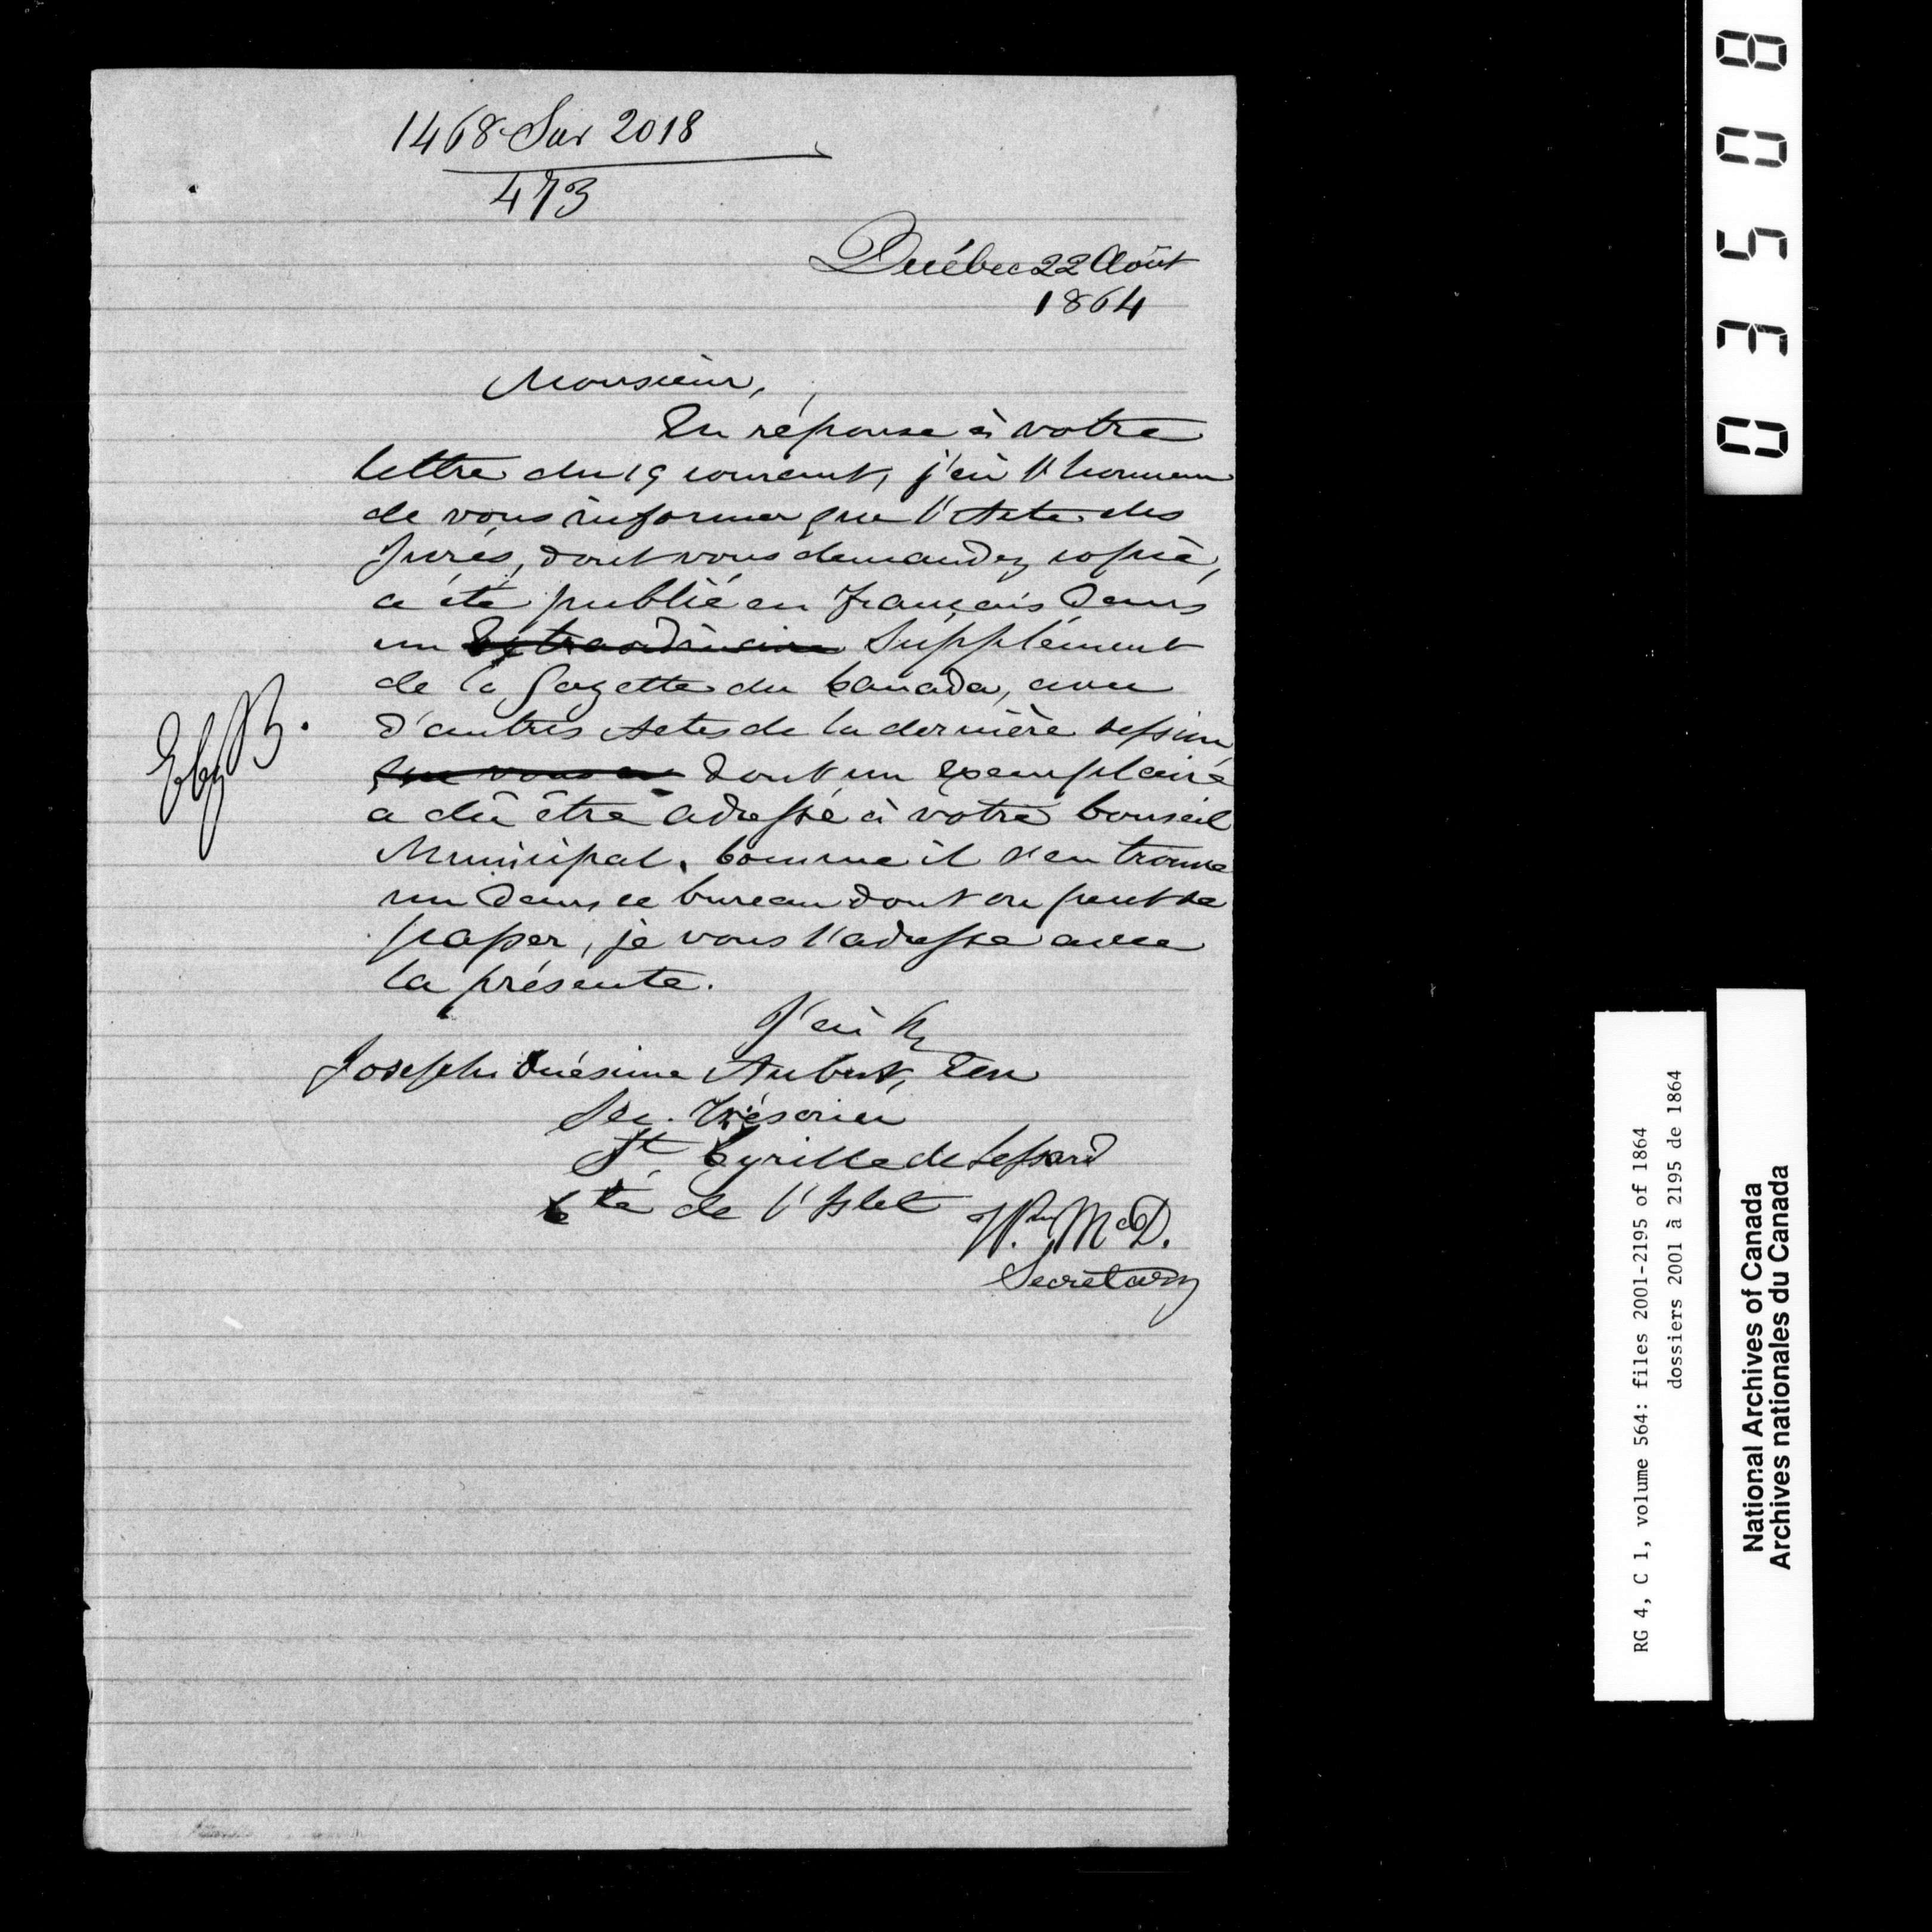 1468 Sur 2018
473
Québec 22 Août
1864
Monsieur,
En réponse à votre
lettre du 19 courant, j'ai l'honneur
de vous informer que l'Acte des
Jurés, dont vous demandez copie,
a été publié en français dans
un Extraordinaire Supplément
de la Gazette du Canada, avec
d'autres Actes de la dernière session
que vous dont un exemplaire
a dû être adressé à votre Conseil
Municipal. Comme il s'en trouve
un dans ce bureau dont on peut se
passer, je vous l'adresse avec
la présente.
J'ai
Joseph Onésime Aubert, Ecr
Sec. Trésorier
St Cyrille de Lessard
Cté de l'Islet
Wm McD.
Secretary
03508
RG 4, C 1, volume 564: files 2001-2195 of 1864
dossiers 2001 à 2195 de 1864
National Archives of Canada
Archives nationales du Canada